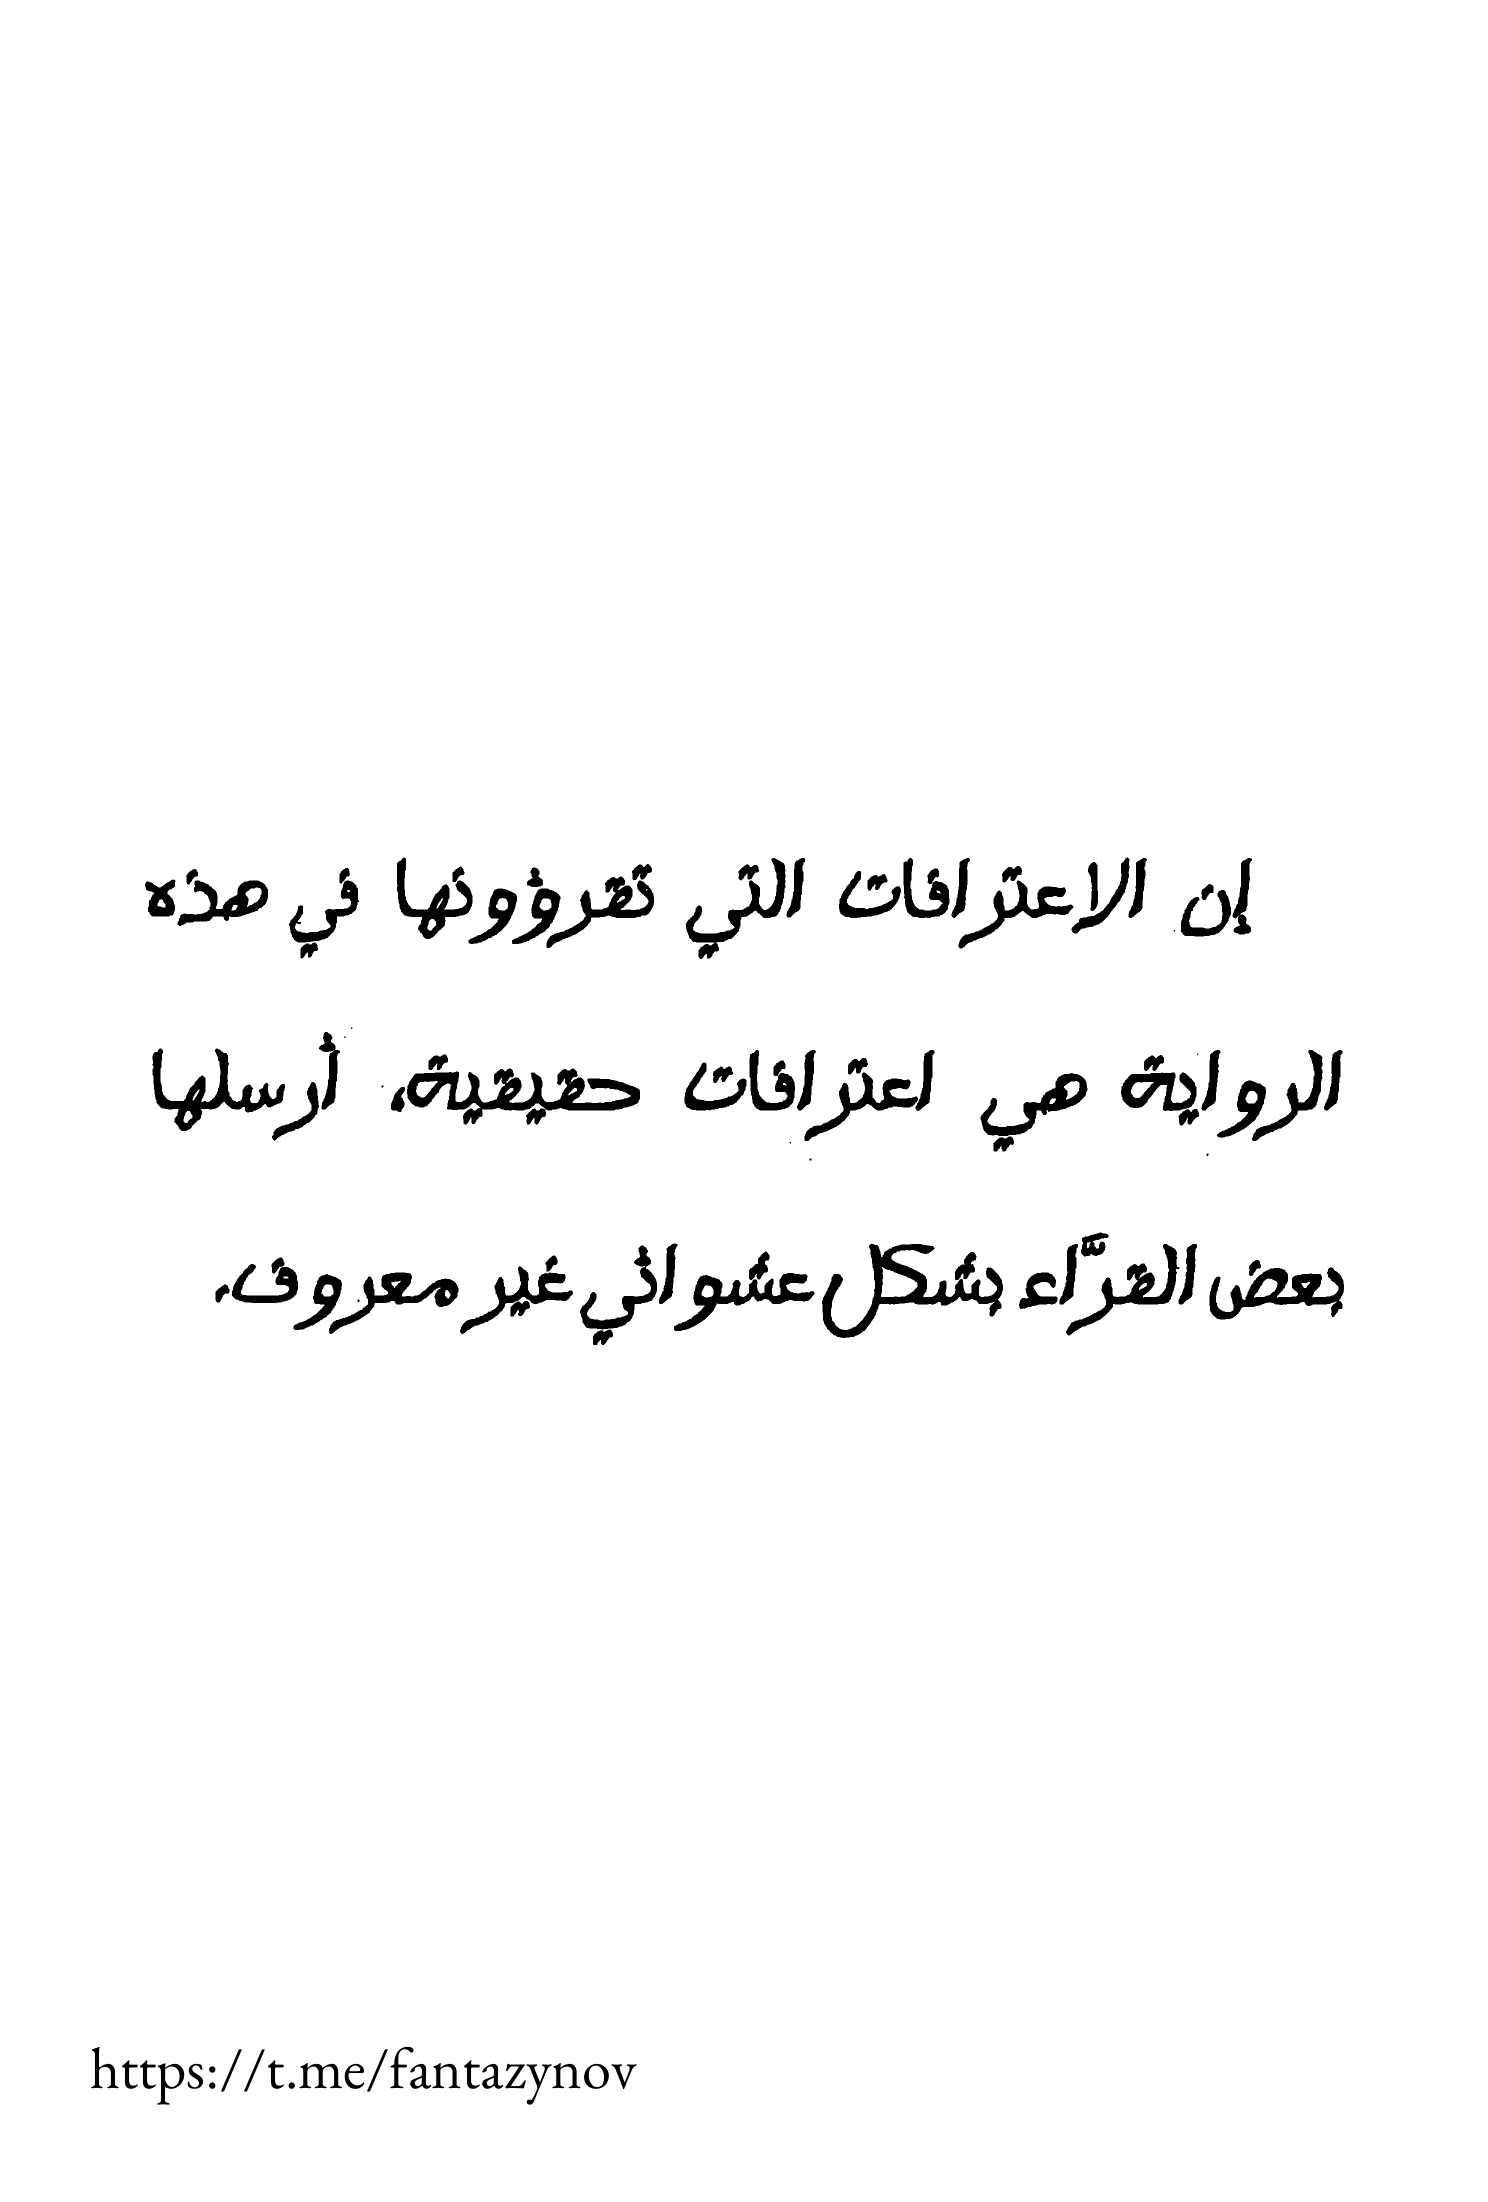 إن الاعترافات التي تقرؤونها في هذه
الرواية هي اعترافات حقيقية، أرسلها
بعض القرَّاء بشكل عشوائي غير معروف.
https://t.me/fantazynov